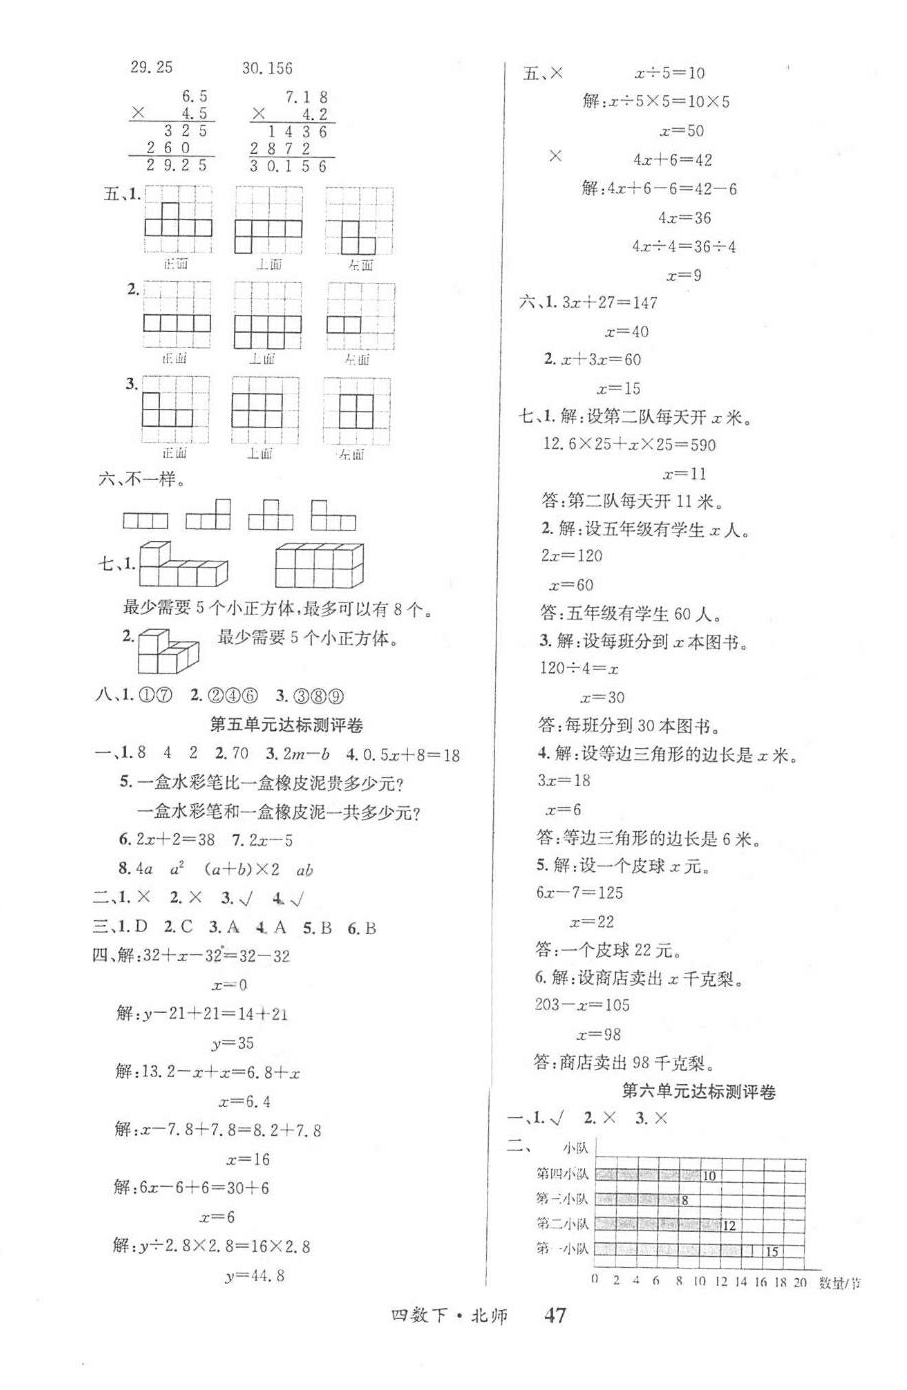 29.25 30.156
6.5 7.18
× 4.5 × 4.2
325 1436
260 2872
29.25 30.156
五、1.
正面 上面 左面
2.
正面 上面 左面
3.
正面 上面 左面
六、不一样。
七、1.
最少需要5个小正方体,最多可以有8个。
2. 最少需要5个小正方体。
八、1.①⑦ 2.②④⑥ 3.③⑧⑨
第五单元达标测评卷
一、1.8 4 2 2.70 3.2m−b 4.0.5x+8=18
5.一盒水彩笔比一盒橡皮泥贵多少元?
一盒水彩笔和一盒橡皮泥一共多少元?
6.2x+2=38 7.2x−5
8.4a a² (a+b)×2 ab
二、1.× 2.× 3.√ 4.√
三、1.D 2.C 3.A 4.A 5.B 6.B
四、解:32+x−32=32−32
x=0
解:y−21+21=14+21
y=35
解:13.2−x+x=6.8+x
x=6.4
解:x−7.8+7.8=8.2+7.8
x=16
解:6x−6+6=30+6
x=6
解:y÷2.8×2.8=16×2.8
y=44.8
五、× x÷5=10
解:x÷5×5=10×5
x=50
× 4x+6=42
解:4x+6−6=42−6
4x=36
4x÷4=36÷4
x=9
六、1.3x+27=147
x=40
2.x+3x=60
x=15
七、1.解:设第二队每天开x米。
12.6×25+x×25=590
x=11
答:第二队每天开11米。
2.解:设五年级有学生x人。
2x=120
x=60
答:五年级有学生60人。
3.解:设每班分到x本图书。
120÷4=x
x=30
答:每班分到30本图书。
4.解:设等边三角形的边长是x米。
3x=18
x=6
答:等边三角形的边长是6米。
5.解:设一个皮球x元。
6x−7=125
x=22
答:一个皮球22元。
6.解:设商店卖出x千克梨。
203−x=105
x=98
答:商店卖出98千克梨。
第六单元达标测评卷
一、1.√ 2.× 3.×
二、 小队
第四小队 10
第三小队 8
第二小队 12
第一小队 15
0 2 4 6 8 10 12 14 16 18 20 数量/节
四数下·北师 47